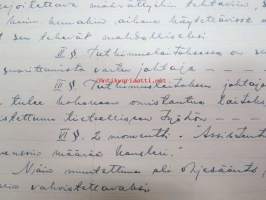 määrättyihin tehtäviin,
kuin kunakin aikana käytettävissä
sen tekevät mahdolliseksi
II § Tutkimuslaitoksessa on
suorittamista varten johtaja
III § Tutkimuslaitoksen johtaja
tulee kokonaan omistautua laitoksen
tieteelliseen työhön
VI § 2 momentti. Assistentin
määrää kansleri."
Näin muutettuna oli ohjesääntö
vahvistettavaksi